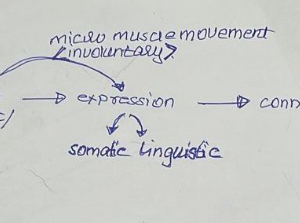 micro muscle movement
<involuntary>
c/ → expression → conn
somatic linguistic